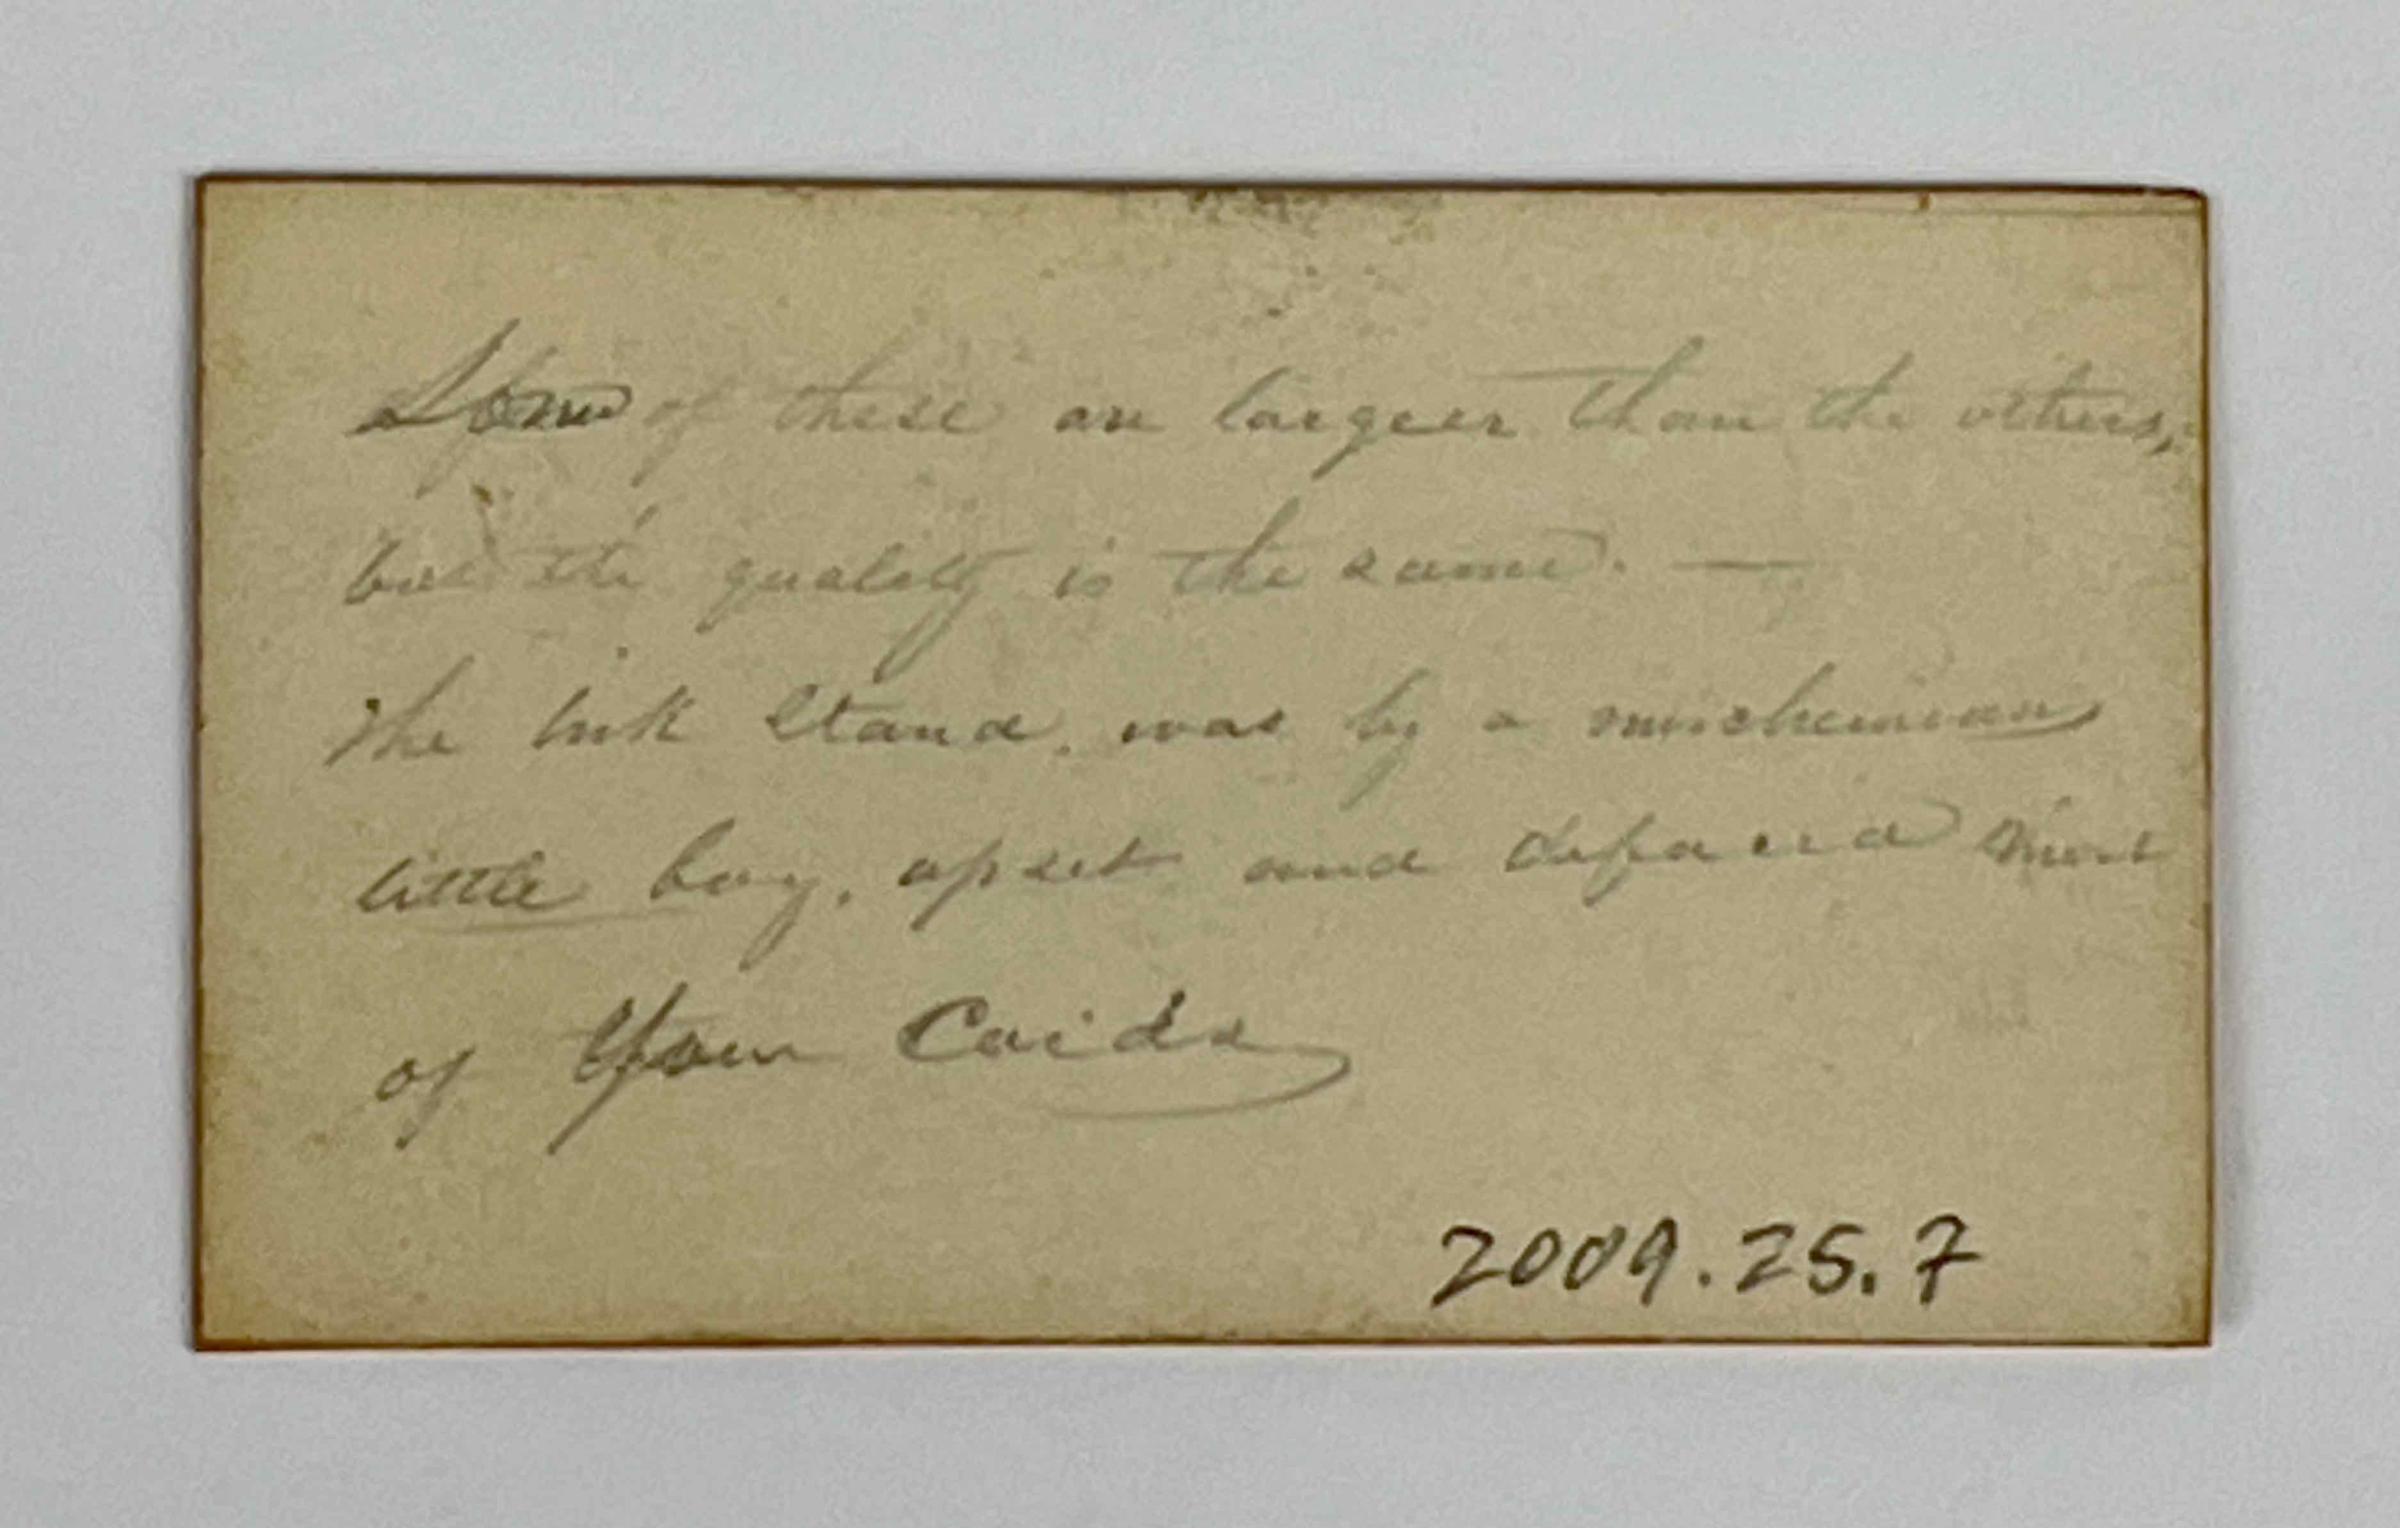 Some of these are larger than the others,
but the quality is the same. —
The Ink Stand, was by a mischeivous
little boy, upset and defaced most
of Your Cards
2009.25.7